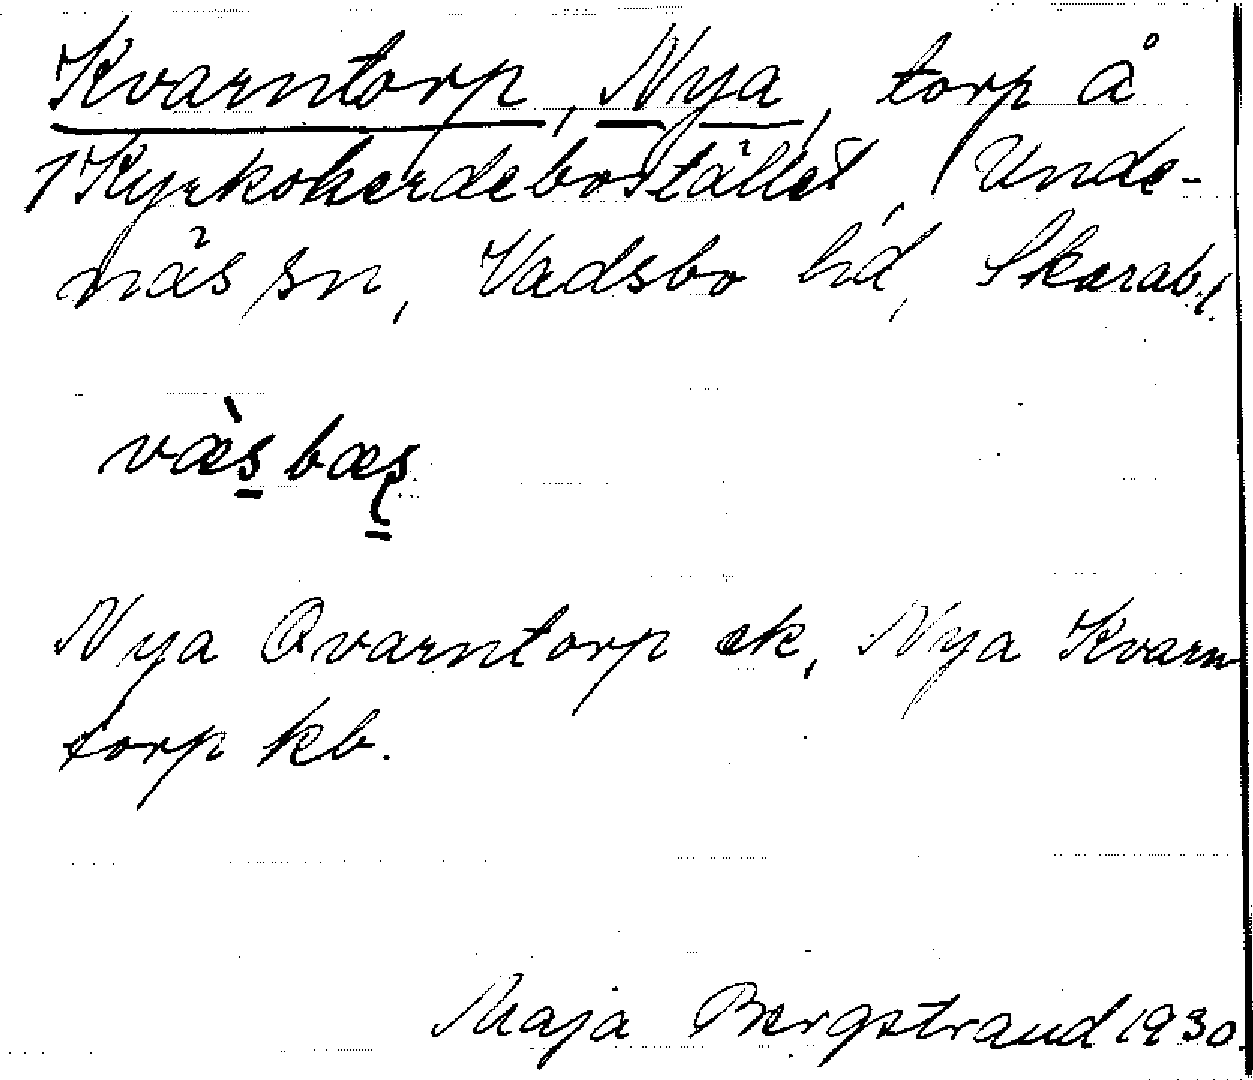 Kvarntorp, Nya, torp å
1 Kyrkoherdebostället, Unde-
näs sn, Vadsbo hd, Skarab.l.
Nya Qvarntorp ek, Nya Kvarn
torp kb.
Maja Bergstrand 1930.